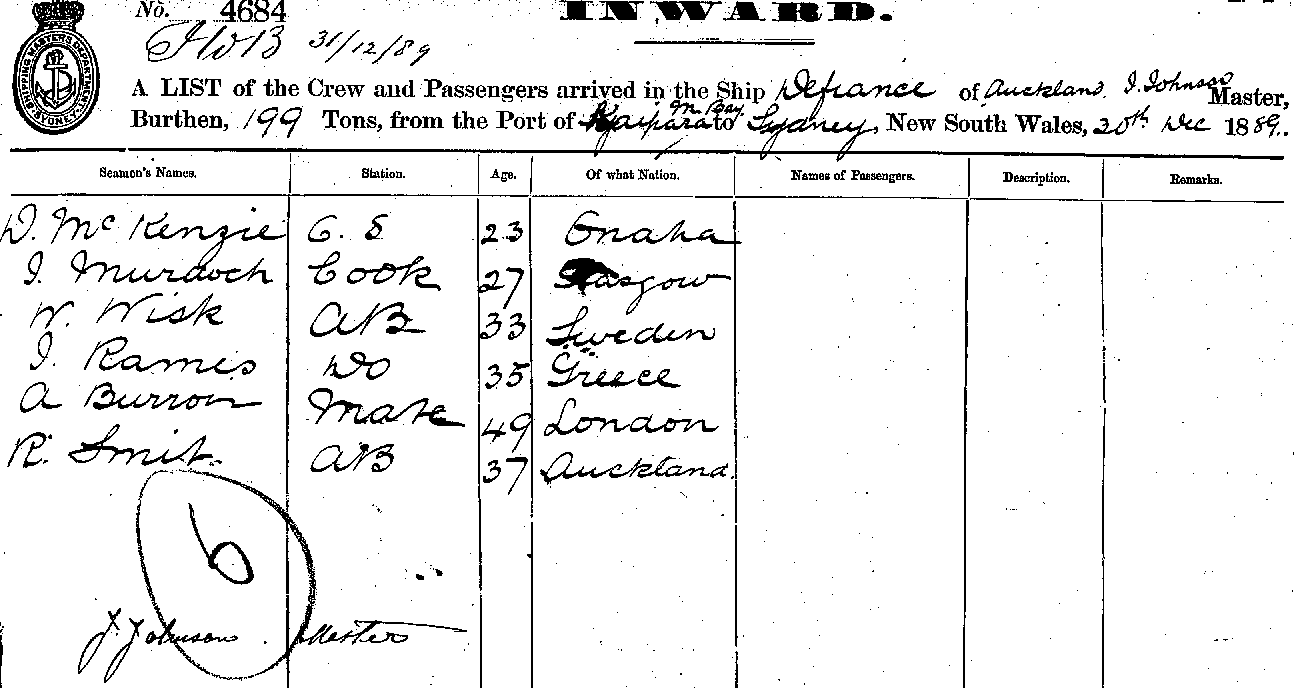 No. 4684
INWARD.
31/12/89
SHIPPING MASTERS DEPARTMENT SYDNEY
A LIST of the Crew and Passengers arrived in the Ship Defiance of Auckland. J. Johnson Master,
M Bay
Burthen, 199 Tons, from the Port of Kaipara to Sydney, New South Wales, 20th Dec 1889.
Seamen's Names. Station. Age. Of what Nation. Names of Passengers. Description. Remarks.
D. McKenzie O.S 23 Omaha
J. Murdoch Cook 27 Glasgow
W. Wisk AB 33 Sweden
J. Rames Do 35 Greece
A Burrow Mate 49 London
R. Smit AB 37 Auckland.
6
J. Johnson. Master